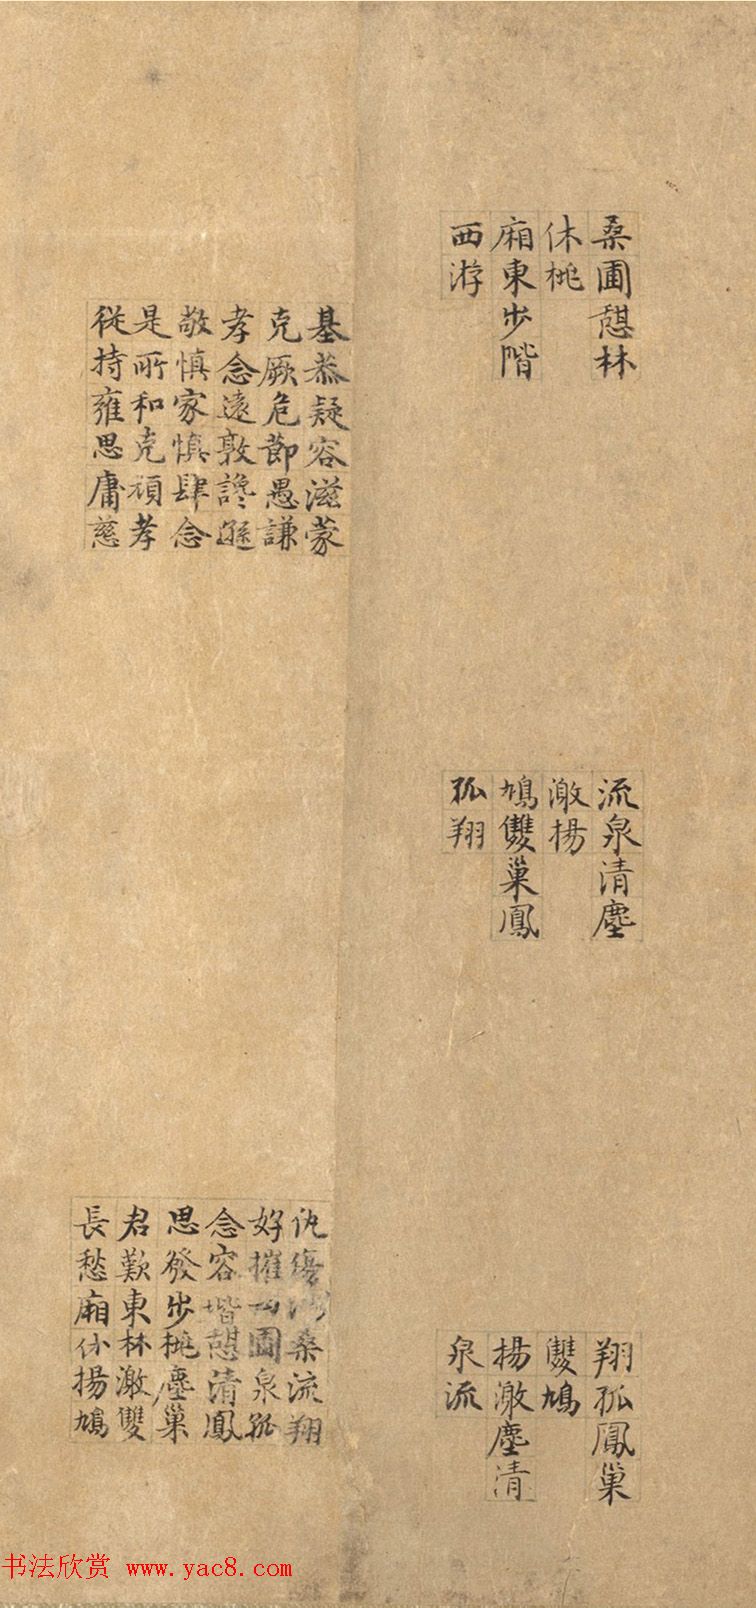 桑圃憩林
休桃
廂東步階
西游
流泉清塵
激揚
鳩雙巢鳳
孤翔
翔孤鳳巢
雙鳩
揚激塵清
泉流
基恭疑容滋蒙
克厥危節愚謙
孝念遠敦讒遜
敬慎家慎肆念
是所和克頑孝
從持雍思庸慈
仇傷桑流翔
好摧西圃泉孤
念容階憩清鳳
思發步桃塵巢
君歎東林激雙
長愁廂休揚鳩
书法欣赏 www.yac8.com